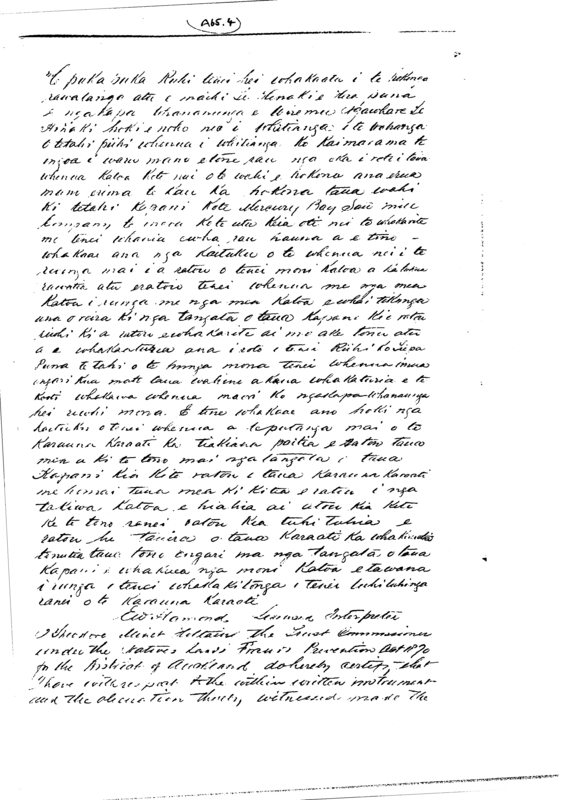 Abs. 4
E puka puka Ruhi tenei hei whakaatu i te hokonga
rawatanga atu e mathi te Henaki e
e ngakapa whanaunga e Ngawhare te
Hinaki hoki e noho na i Whitianga i te wahanga
o tetahi pihi whenua i Whitianga ko Kaimarama te
ingoa e waru mano e toru rau nga eka i roto i taua
whenua katoa ko te nui o te wahi e hokona ana e rua
mano e rima te kau ka hokona taua wahi
ki tetahi Kapani Kote Mercury Bay Saw mill
Company te ingoa Ko te utu Kia oti nei te whakarite
mo tenei whenua e wha rau pauna a e tino
whakaae ana nga kaituku o te whenua nei i te
runga mai i a ratou o tenei moni katoa a ka tukua
rawatia atu e ratou tenei whenua me nga mea
katoa i runga me nga mea katoa e whai tikanga
ana o reira ki nga tangata o taua Kapani Kia ratou
ki a ratou e whakarite ai mo ake tonu atu
a e whakaaturia ana i roto i tenei Ruhi ko
Puna tetahi o te hunga mona tenei whenua i mua
engari kua mate taua wahine a kaua whakaturia e te
Kooti whakawa whenua maori ko ngakapa whanaunga
hei mona. E tino whakaae ano hoki nga
kaituku o tenei whenua a te putanga mai o te
Karauna Karaati ka tiakina paitia e ratou taua
mea a ki te tono mai nga tangata i taua
Kapani Kia Kite ratou i taua Karauna Karaati
me homai taua mea Ki Kita e ratou i nga
takiwa katoa e hiahia ai ratou Kia Kite
Ki te tono ranei ratou Kia tuhi tuhia e
ratou he Tauira o taua Karaati ka whakaaetia
taua tono engari ma nga tangata o taua
Kapani e whakaea nga moni katoa e tawana
i runga i tenei whaka kitenga i tenei tuhituhinga
ranei o te Karauna Karaati
E W Hamond Licensed Interpreter
I Theodore Minet Haultain the Trust Commissioner
under the Natives Lands Frauds Prevention Act 1870
for the District of Auckland do hereby certify that
I have with respect to the within written instrument
and the alienation thereby witnessed made the